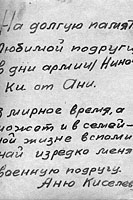 На долгую памят
Любимой подруги
в дни армии/ Нино
Ки от Ани.
В мирное время, а
может и в семей-
ной жизне вспоми
най изредко меня
военную подругу.
Аню Киселев